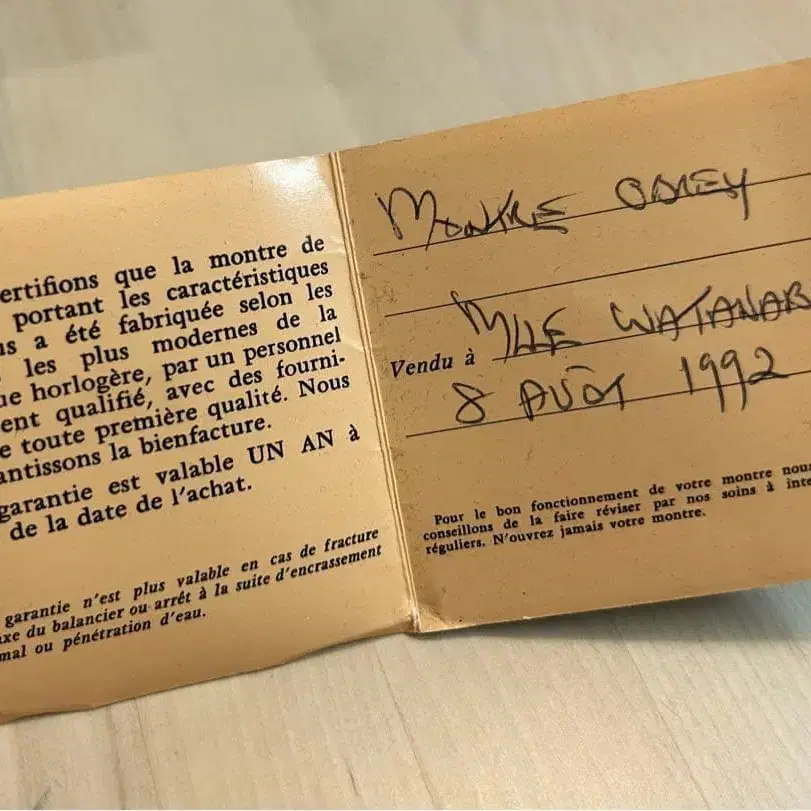 ertifions que la montre de
portant les caractéristiques
us a été fabriquée selon les
les plus modernes de la
ue horlogère, par un personnel
ent qualifié, avec des fourni-
e toute première qualité. Nous
antissons la bienfacture.
garantie est valable UN AN à
de la date de l'achat.
garantie n'est plus valable en cas de fracture
axe du balancier ou arrêt à la suite d'encrassement
mal ou pénétration d'eau.
MONTRE
Vendu à MLLE WATANAB
8 AOÛT 1992
Pour le bon fonctionnement de votre montre nous
conseillons de la faire réviser par nos soins à inte
réguliers. N'ouvrez jamais votre montre.